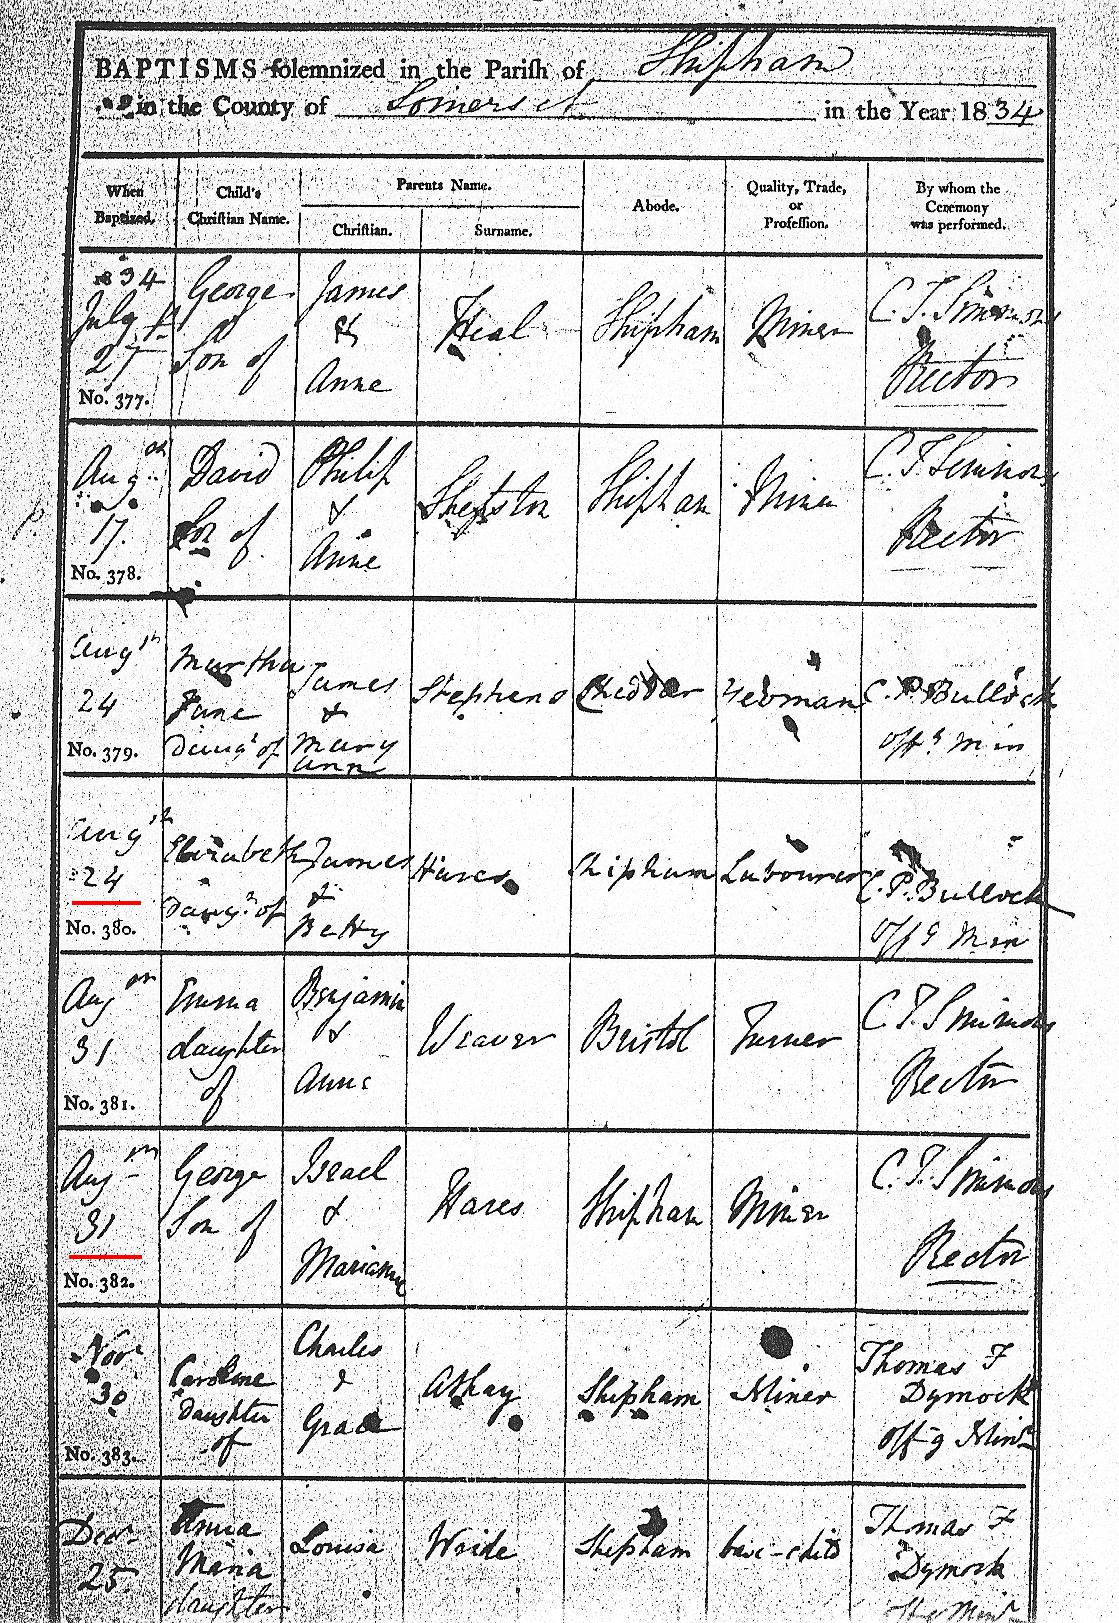 BAPTISMS solemnized in the Parish of Shipham
in the County of Somerset in the Year 1834
When Baptized.
Child's Christian Name.
Parents Name.
Christian.
Surname.
Abode.
Quality, Trade, or Profession.
By whom the Ceremony was performed.
1834
July
27
No. 377.
George
Son of
James
&
Anne
Heal
Shipham
Miner
C. T. Simmons
Rector
Augst
17.
No. 378.
David
Son of
Philip
&
Anne
Shepston
Shipham
Miner
C. T. Simmons
Rector
Augst
24
No. 379.
Martha
Jane
Daugr of
James
&
Mary
Ann
Stephens
Cheddar
Yeoman
C. P. Bullock
Offg Min
Augst
24
No. 380.
Elizabeth
Daugr of
James
&
Betty
Hares
Shipham
Labourer
C. P. Bullock
Offg Min
Aug
31
No. 381.
Emma
daughter
of
Benjamin
&
Anne
Weaver
Bristol
Turner
C. T. Simmons
Rector
Aug
31
No. 382.
George
Son of
Israel
&
Marianne
Hares
Shipham
Miner
C. T. Simmons
Rector
Novr
30
No. 383.
Caroline
Daughter
of
Charles
&
Grace
Athay
Shipham
Miner
Thomas F
Dymock
Offg Minr
Decr
25
Anna
Maria
daughter
Louisa
Wride
Shipham
Thomas F
Dymock
Minr